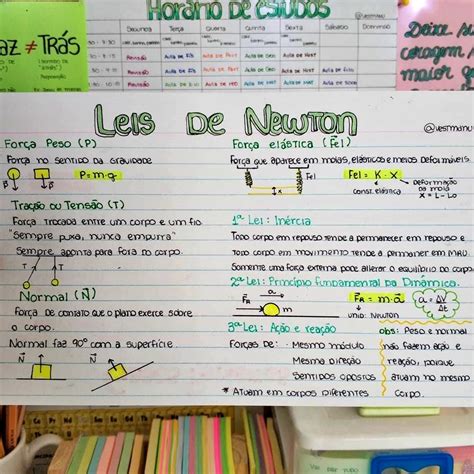 Horário de estudos
@vestmanu
az ≠ Trás
Segunda Terça Quarta Quinta Sexta Sábado Domingo
Revisão Aula de Aula de Aula de Aula de
Revisão Aula de Aula de Aula de Aula de
Deixe
coragem
maior
Leis de Newton
@vestmanu
Força Peso (P)
Força no sentido da gravidade
P P P=m.g
Tração ou Tensão (T)
Força trocada entre um corpo e um fio
"Sempre puxa, nunca empurra"
Sempre aponta para fora do corpo.
T T
Normal (N)
Força de contato que o plano exerce sobre
o corpo.
Normal faz 90° com a superfície.
N N
Força elástica (Fel)
Força que aparece em molas, elásticos e meios deformáveis.
Fel Fel
x
Fel = K . X
const. elástica
deformação
da mola
X = L - Lo
1ª Lei: Inércia
Todo corpo em repouso tende a permanecer em repouso e
todo corpo em movimento tende a permanecer em MRU.
Somente uma força externa pode alterar o equilíbrio do corpo.
2ª Lei: Princípio fundamental da Dinâmica.
FR a m
FR = m.a
unid: Newton
a = ΔV
Δt
3ª Lei: Ação e reação
Forças de: • Mesmo módulo
Mesma direção
Sentidos opostos
* Atuam em corpos diferentes
obs: Peso e normal
não fazem ação e
reação, porque
atuam no mesmo
corpo.
Vai per tudo